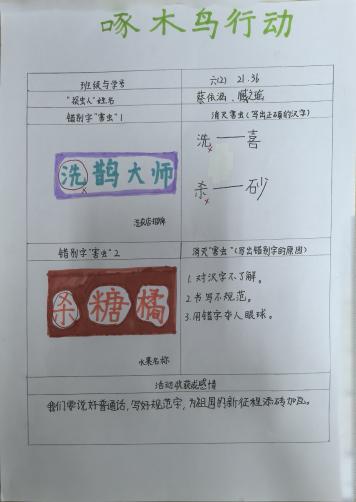 啄木鸟行动
班级与学号 六(2) 21.36
"捉虫人"姓名 蔡依涵、臧
错别字"害虫"1 消灭害虫(写出正确的汉字)
洗鹊大师
洗衣店招牌
洗——喜
杀——砂
错别字"害虫"2 消灭"害虫"(写出错别字的原因)
杀糖橘
水果名称
1. 对汉字不了解。
2. 书写不规范。
3. 用错字夺人眼球。
活动收获或感悟
我们要说好普通话,写好规范字,为祖国的新征程添砖加瓦。